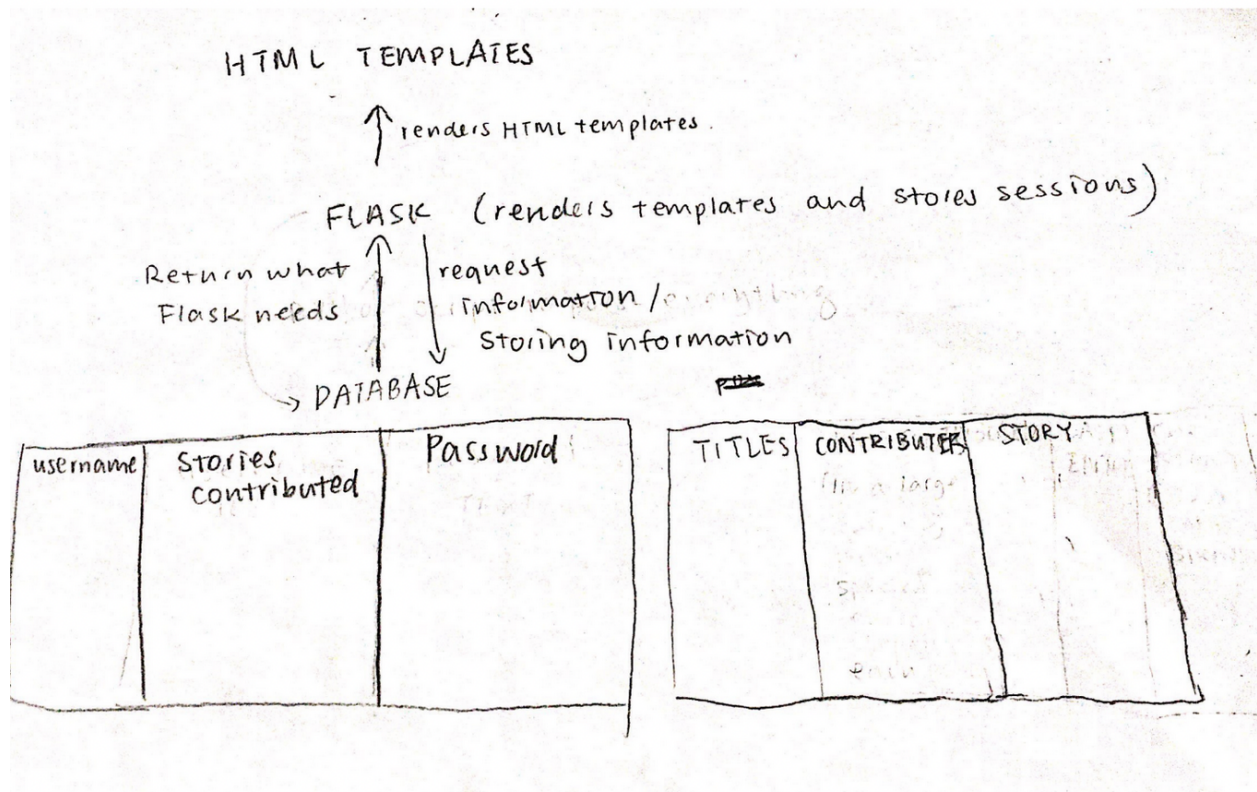 HTML TEMPLATES
renders HTML templates.
FLASK (renders templates and stores sessions)
Return what
Flask needs
request
information /
storing information
DATABASE
username
Stories
contributed
Password
TITLES
CONTRIBUTER
STORY